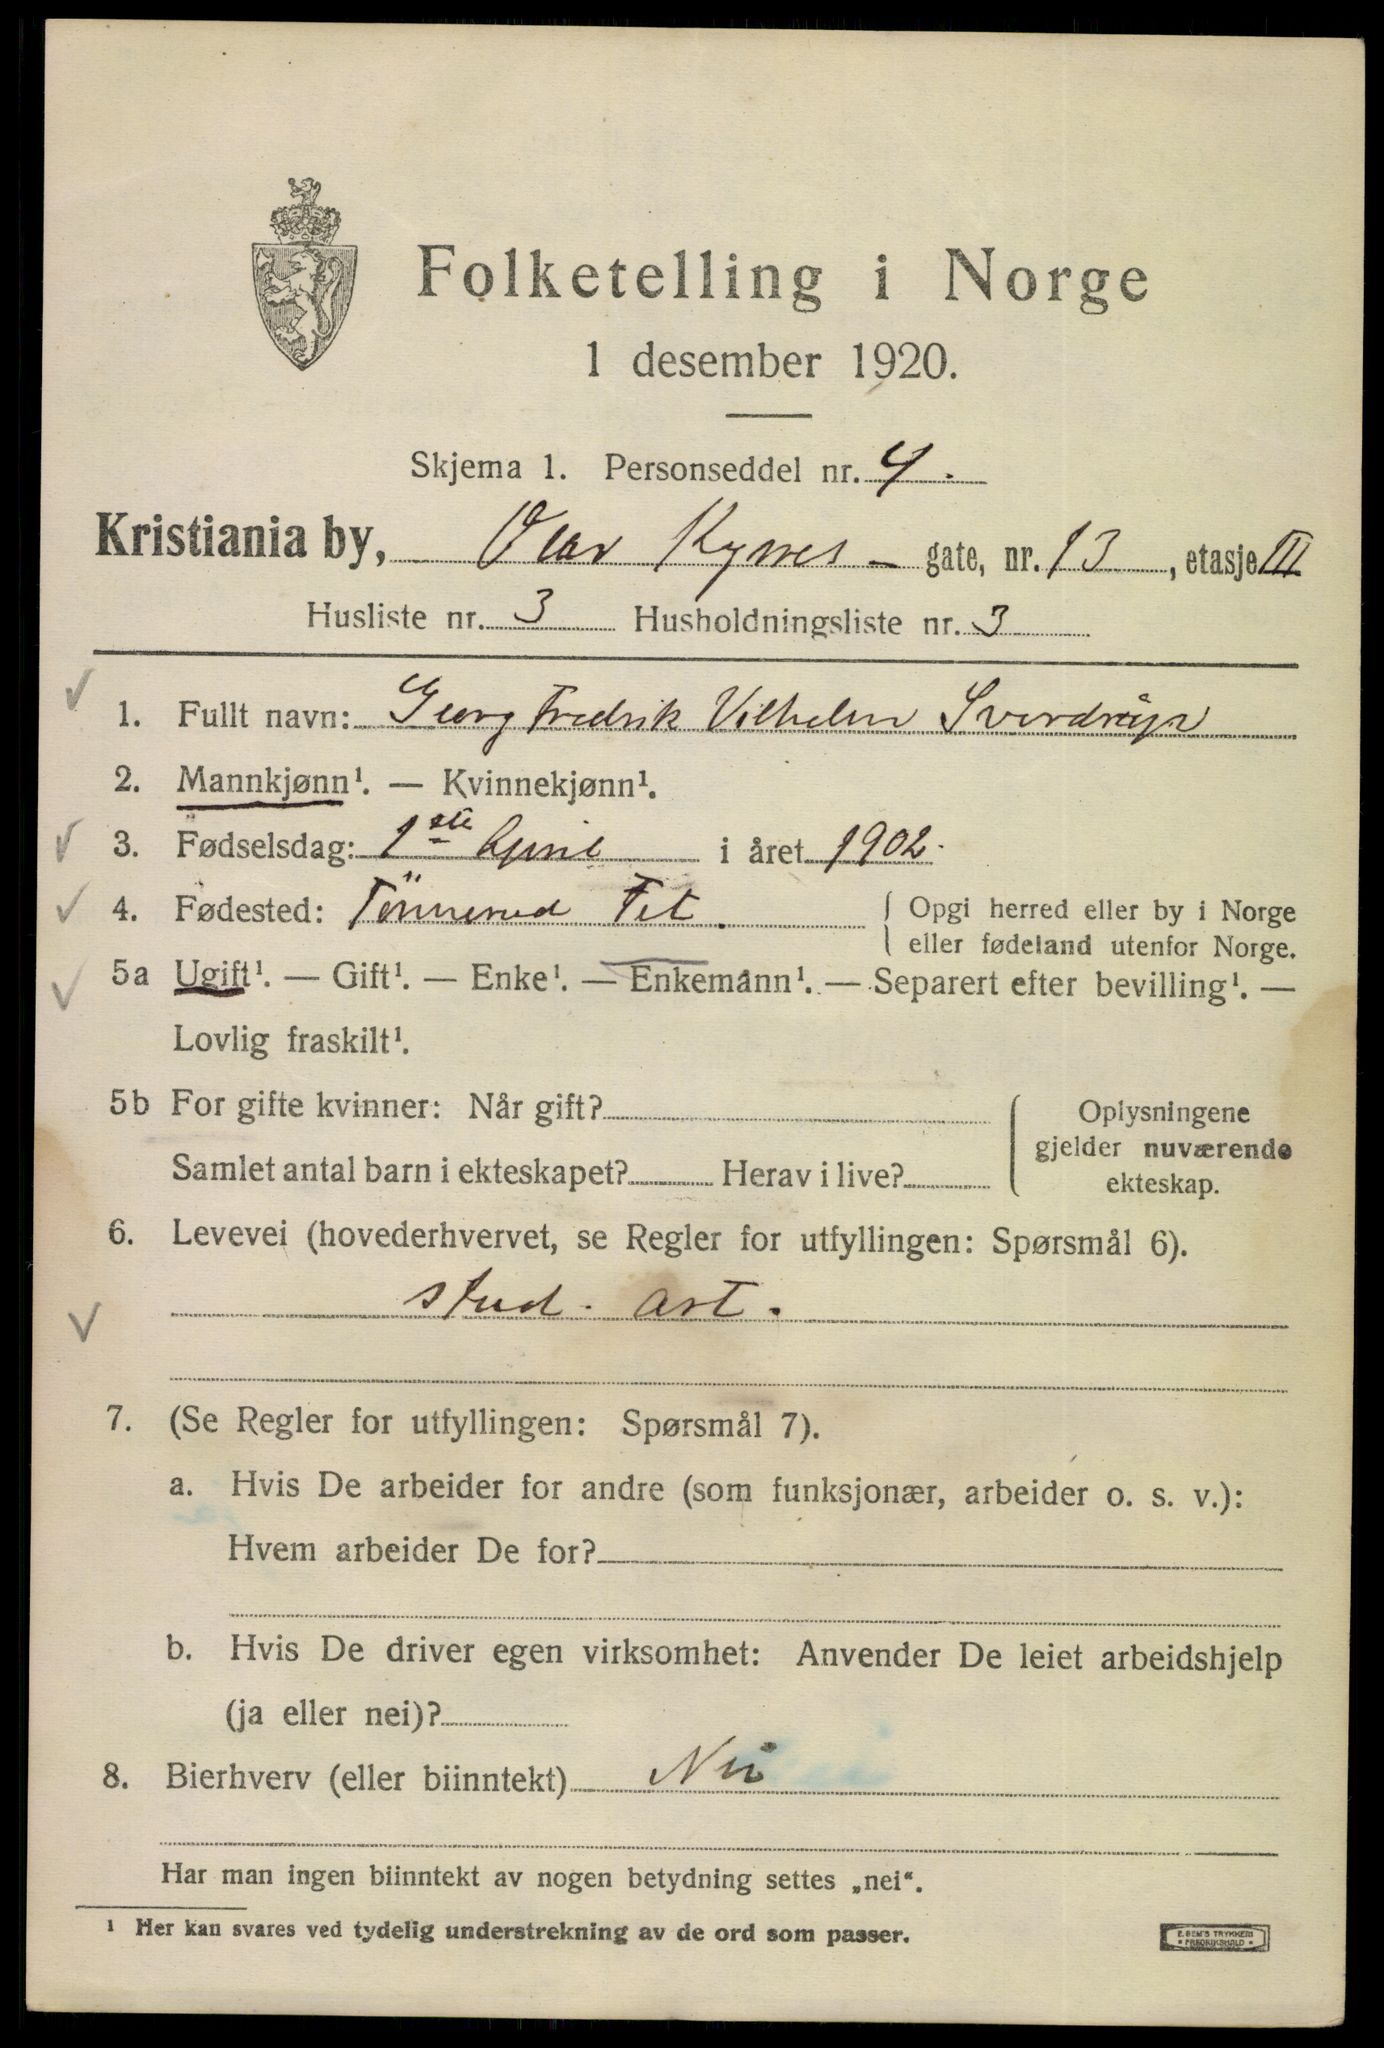 Folketelling i Norge
1 desember 1920.
Skjema 1. Personseddel nr. 4.
Kristiania by, Olav Kyrres - gate, nr. 13, etasje III
Husliste nr. 3 Husholdningsliste nr. 3
1. Fullt navn: Georg Fredrik Vilhelm Sverdrup
2. Mannkjønn¹. — Kvinnekjønn¹.
3. Fødselsdag: 1ste April i året 1902.
4. Fødested: Tönnerud Fet. Opgi herred eller by i Norge
eller fødeland utenfor Norge.
5a Ugift¹. — Gift¹. — Enke¹. — Enkemann¹. — Separert efter bevilling¹. —
Lovlig fraskilt¹.
5b For gifte kvinner: Når gift?
Samlet antal barn i ekteskapet? Herav i live?
Oplysningene
gjelder nuværende
ekteskap.
6. Levevei (hovederhvervet, se Regler for utfyllingen: Spørsmål 6).
stud. art.
7. (Se Regler for utfyllingen: Spørsmål 7).
a. Hvis De arbeider for andre (som funksjonær, arbeider o. s. v.):
Hvem arbeider De for?
b. Hvis De driver egen virksomhet: Anvender De leiet arbeidshjelp
(ja eller nei)?
8. Bierhverv (eller biinntekt) Nei
Har man ingen biinntekt av nogen betydning settes „nei“.
¹ Her kan svares ved tydelig understrekning av de ord som passer.
E. SEM'S TRYKKERI
* FREDRIKSHALD *